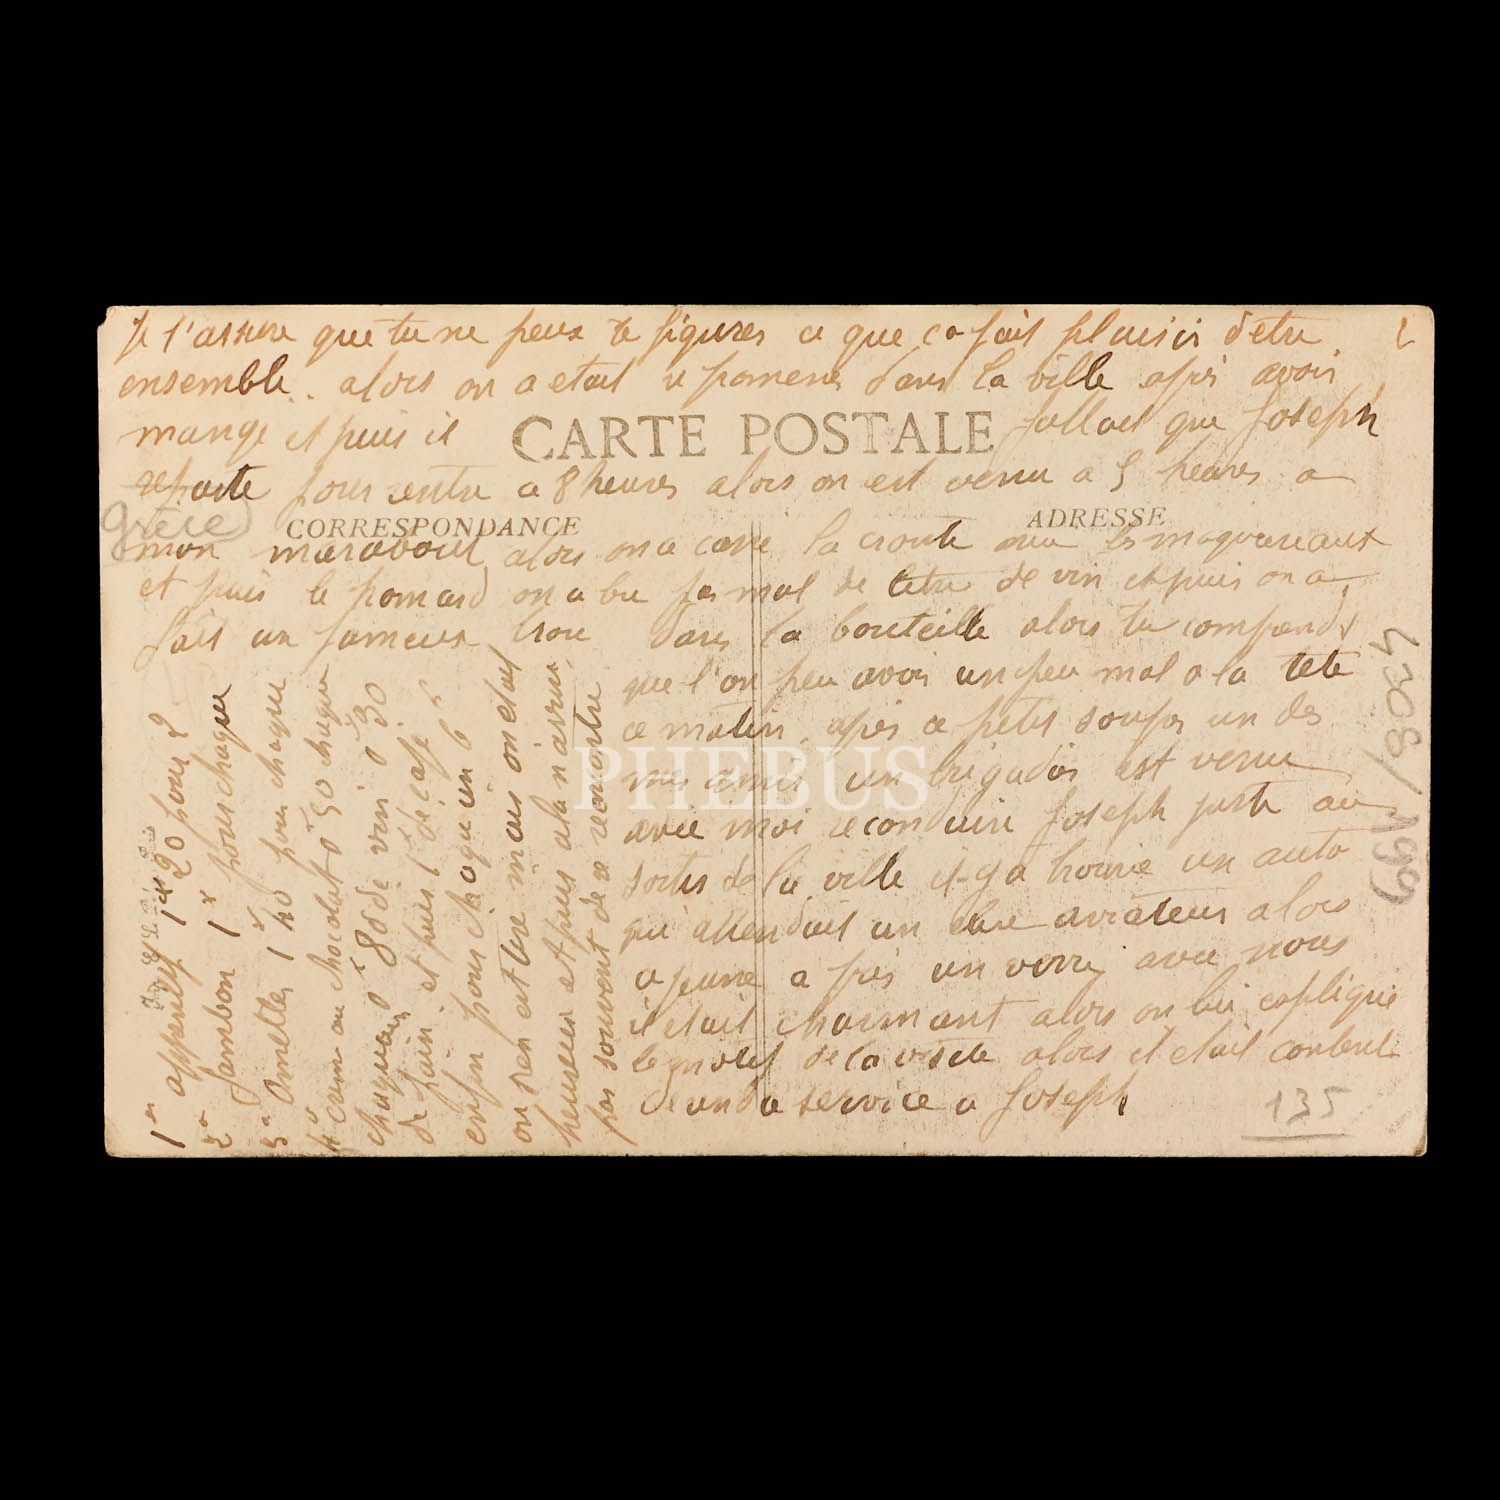 Je t'assure que tu ne peux te figurer ce que ca fait plaisir d'etre
2
ensemble. alors on a etait ce pomener dans la ville apres avoir
mange et puis il
CARTE POSTALE
fallait que Joseph
reparte pour rentre a 8 heures alors on est venu a 5 heures a
Grèce
CORRESPONDANCE
ADRESSE
mon marabout alors on a casse la croute avec les maquereaux
et puis le pomard on a bu pas mal de litre de vin et puis on a
fait un fameux trou dans la bouteille alors tu comprends
que l'on peu avoir un peu mal a la tete
ce matin. apres ce petit souper un des
mes amis un brigadier est venu
avec moi reconduire Joseph juste au
sortir de la ville et y a trouve un auto
qui attendait un eleve aviateur alors
ce jeune a pris un verre avec nous
il etait charmant alors on lui explique
le motif de la visite alors il etait content
de rendre service a Joseph
PHEBUS
1er apperitif 1fr 20 pour 2
2e Jambon 1fr pour chaque
3e Omelte 1fr 40 pour chaque
4e creme au chocolat 0fr 50 chaque
chaquun 0fr 80 de vin 0fr 30
de pain et puis 1fr de cafe
enfin pour chaque un 6fr
on sen est tire mais on etait
heureux et puis a la navrir
pas souvent de ce rencontre
4308/199
135